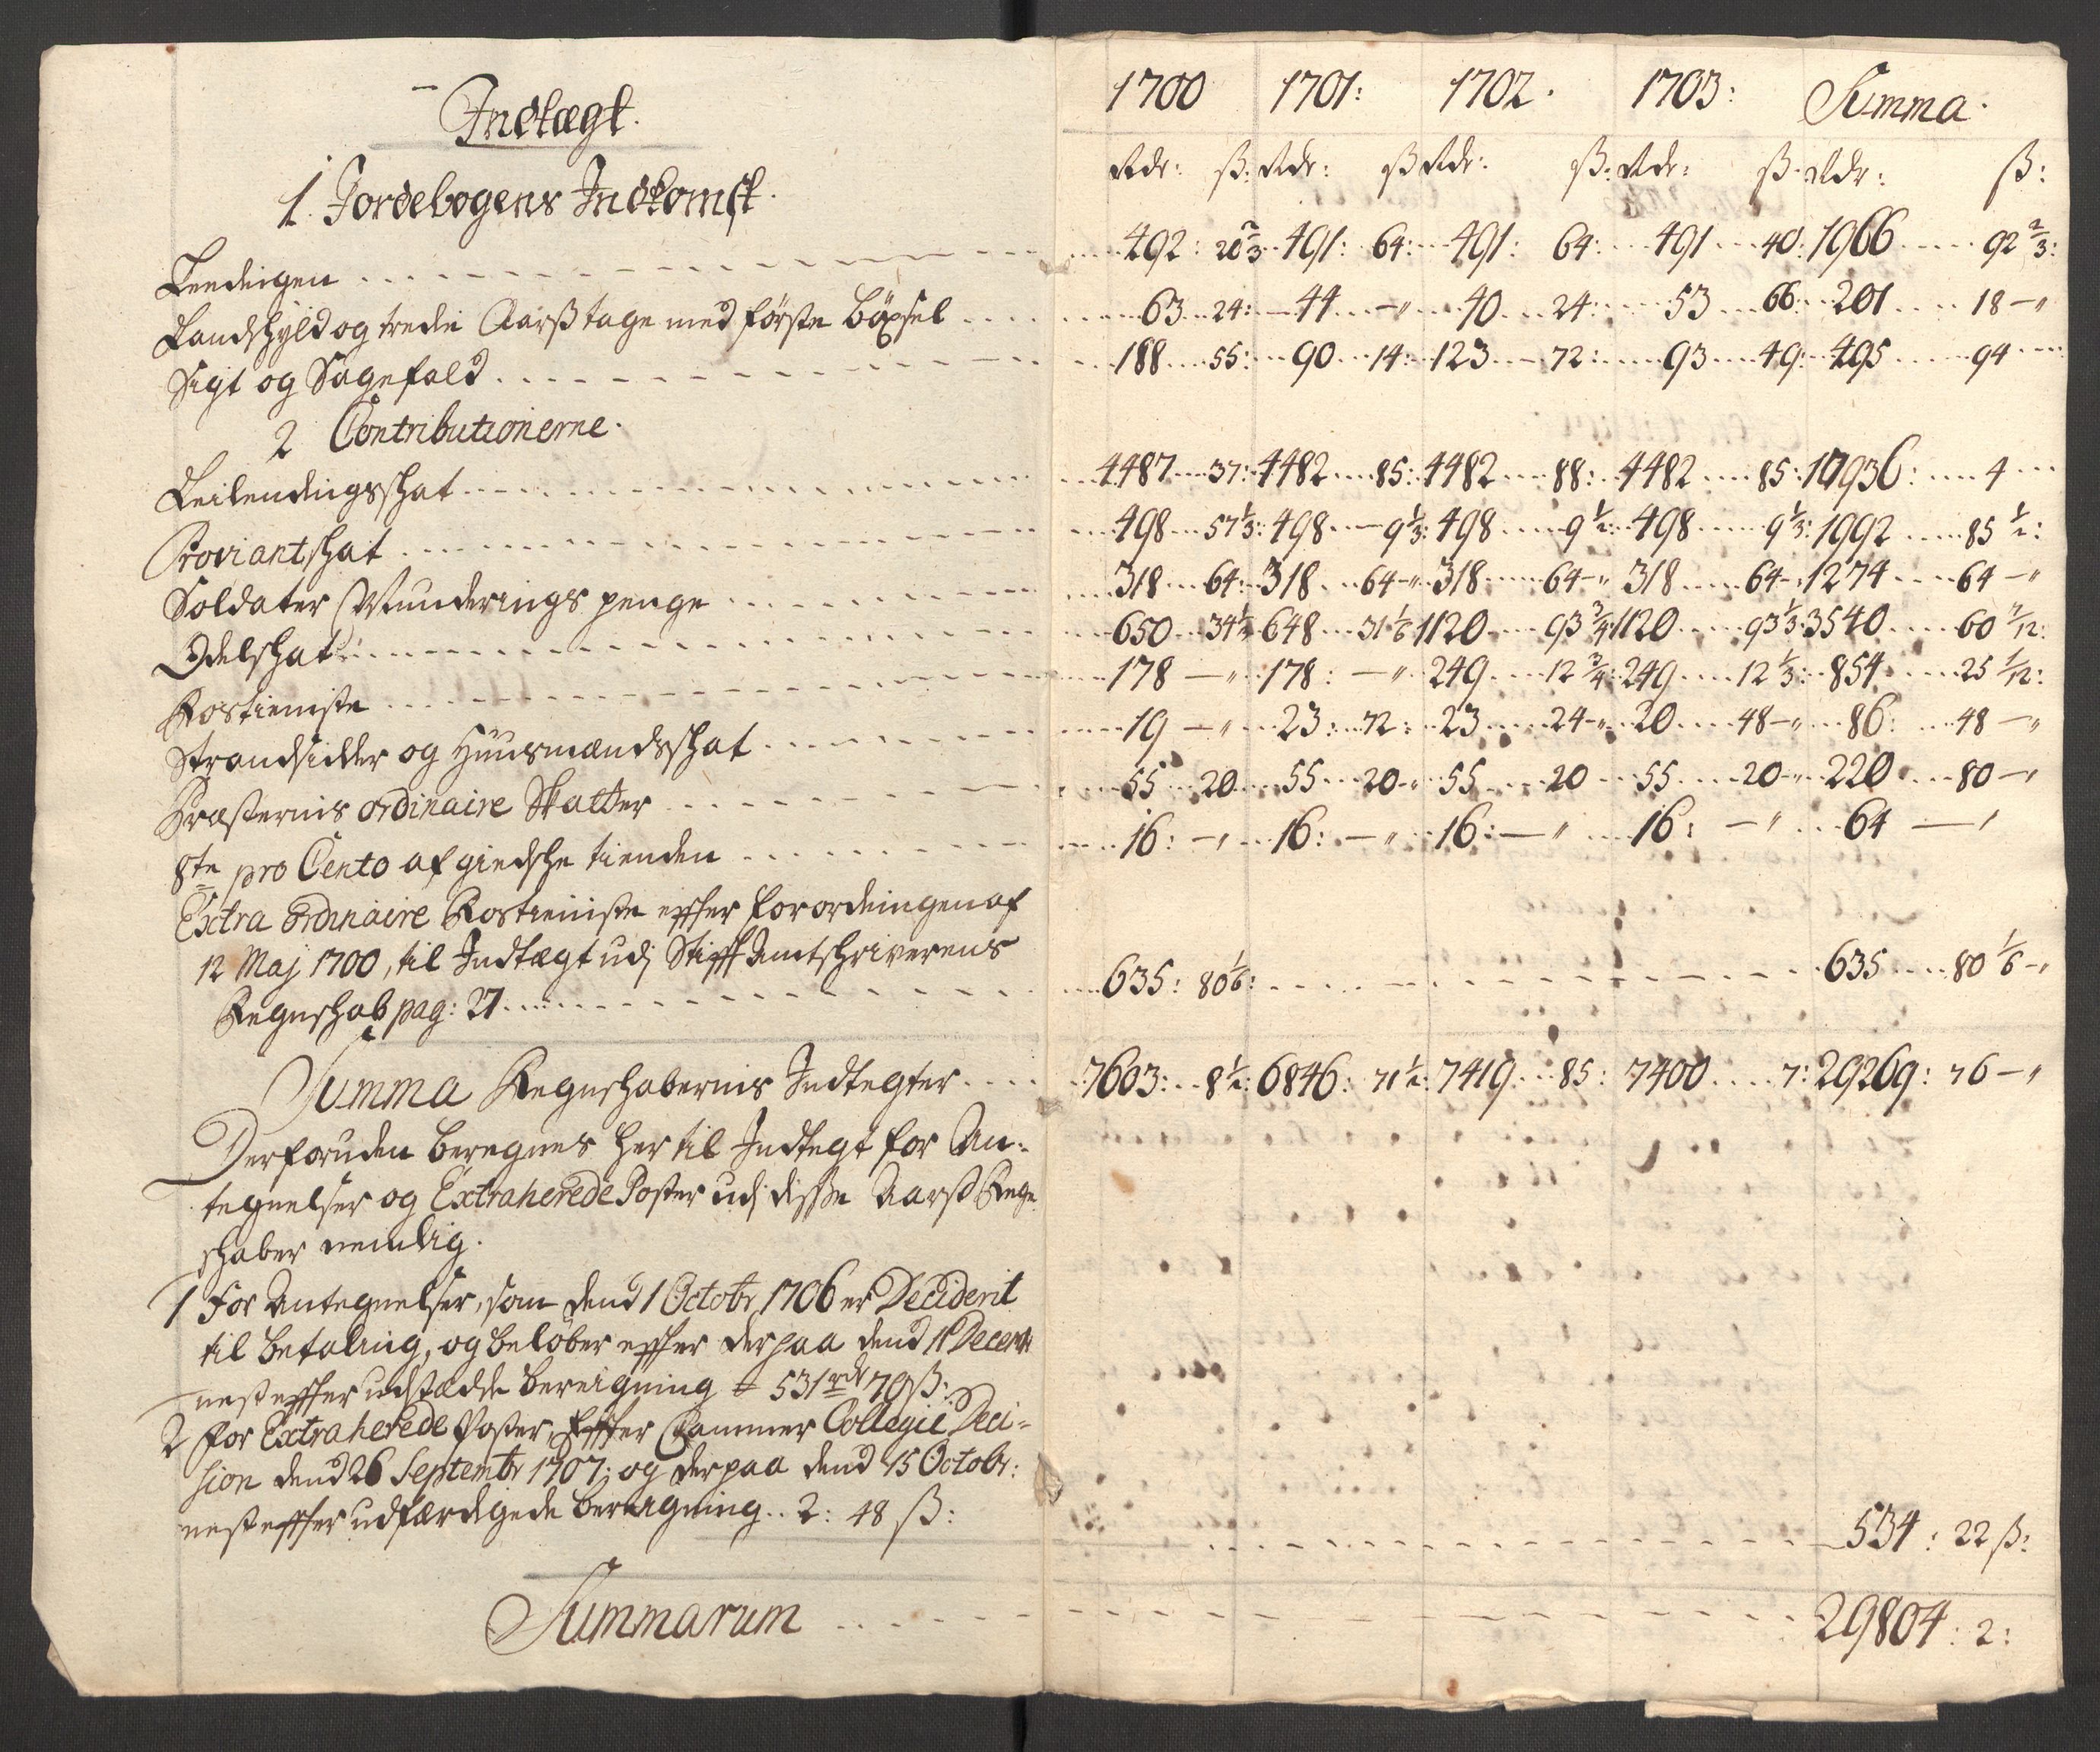 Indtægt.
1700 1701: 1702. 1703: Summa.
Rdr: ß: Rdr: ß Rdr: ß: Rdr: ß. Rdr: ß:
1. Jordebogens Indkomst.
Leedingen 492: 20 2/3 491: 64: 491: 64: 491 40: 1966 92 2/3:
Landschyld og tredie Aarß tage med förste böxsel 63 24: 44 - 40 24: 53 66: 201 18 -
Sigt og Sagefald 188 55: 90 14: 123 72: 93 49: 495 94
2 Contributionerne.
Leilendingsschat 4487 37: 4482 85: 4482 88: 4482 85: 17936: 4
Proviantschat 498 57 1/3: 498 9 1/3: 498 9 1/2: 498 9 1/3: 1992 85 1/2:
Soldater Munderings penge 318 64: 318 64 - 318 64 - 318 64 - 1274 64 -
Odelschat 650 34 1/2 648 31 1/6 1120 93 3/4 1120 93 1/3 3540 60 7/12:
Rostieniste 178 - 178: - 249 12 3/4: 249 12 1/3: 854 25 1/12:
Strandsidder og Huusmændsschat 19 - 23: 72: 23 24 - 20 48 - 86: 48 -
Præsternis ordinaire Skatter 55 20 55 20 - 55 20 55 20 - 220 80 -
8te pro Cento af giedsche tienden 16: - 16: - 16: - 16: - 64 -
Extra Ordinaire Rostieniste effter forordningen af
12 Maj 1700, til Indtægt udj Stifft Amtschriverens
Regnschab pag: 27 635: 80 1/6: 635 80 1/6 -
Summa Regnschabernis Indtegter 7603: 8 1/2: 6846: 71 1/2: 7419 85: 7400 7: 29269: 76 -
Derforuden beregnes her til Indtegt for An-
tegnelser og Extraherede Poster udj disse Aarß Regn
schaber nemlig.
1 For Antegnelser, som dend 1 Octobr 1706 er Deciderit
til betaling, og beløber effter derpaa dend 11 Decembr
nest effter udstædde bereigning = 531 rdr 70 ß:
2 for Extraherede Poster, Effter Cammer Collegii Deci-
sion dend 26 Septembr 1707; og derpaa dend 15 Octobr:
nest effter udferdigede bereigning.. 2: 48 ß: 534: 22 ß:
Summarum 29804: 2: